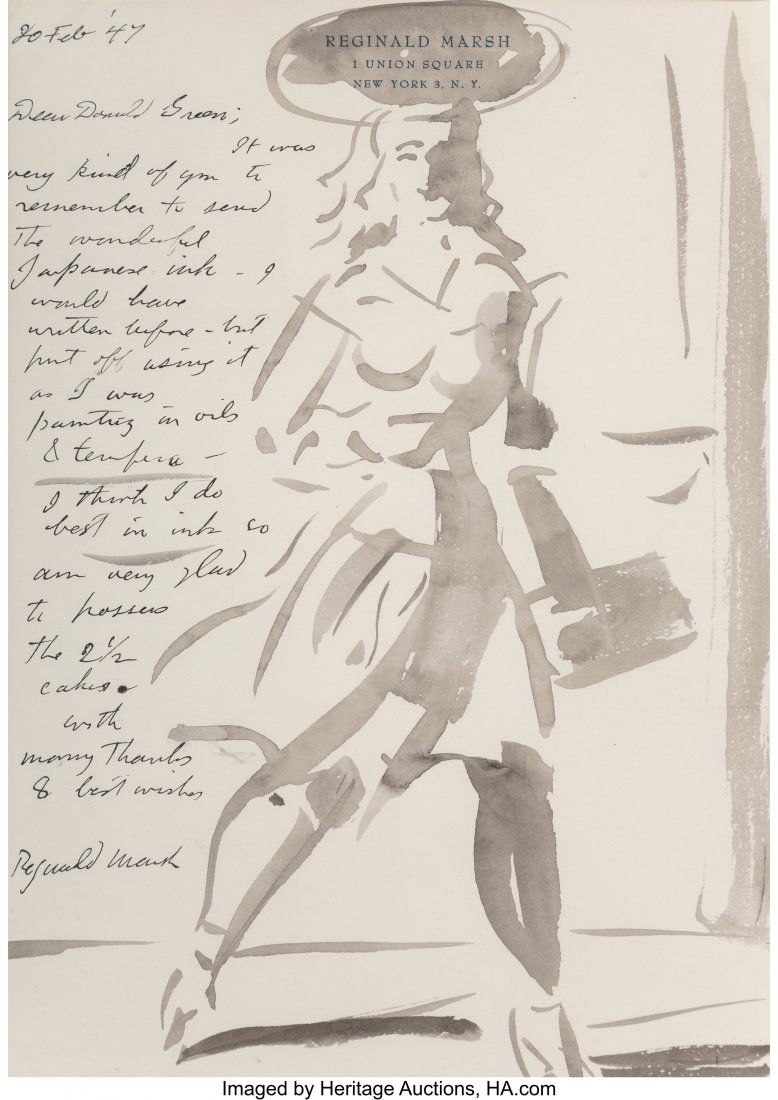 REGINALD MARSH
1 UNION SQUARE
NEW YORK 3, N. Y.
20 Feb '47
Dear Donald Green;
It was
very kind of you to
remember to send
the wonderful
Japanese ink - I
would have
written before - but
put off using it
as I was
painting in oils
& tempera -
I think I do
best in ink so
am very glad
to possess
the 2 1/2
cakes.
with
many thanks
& best wishes
Reginald Marsh
Imaged by Heritage Auctions, HA.com